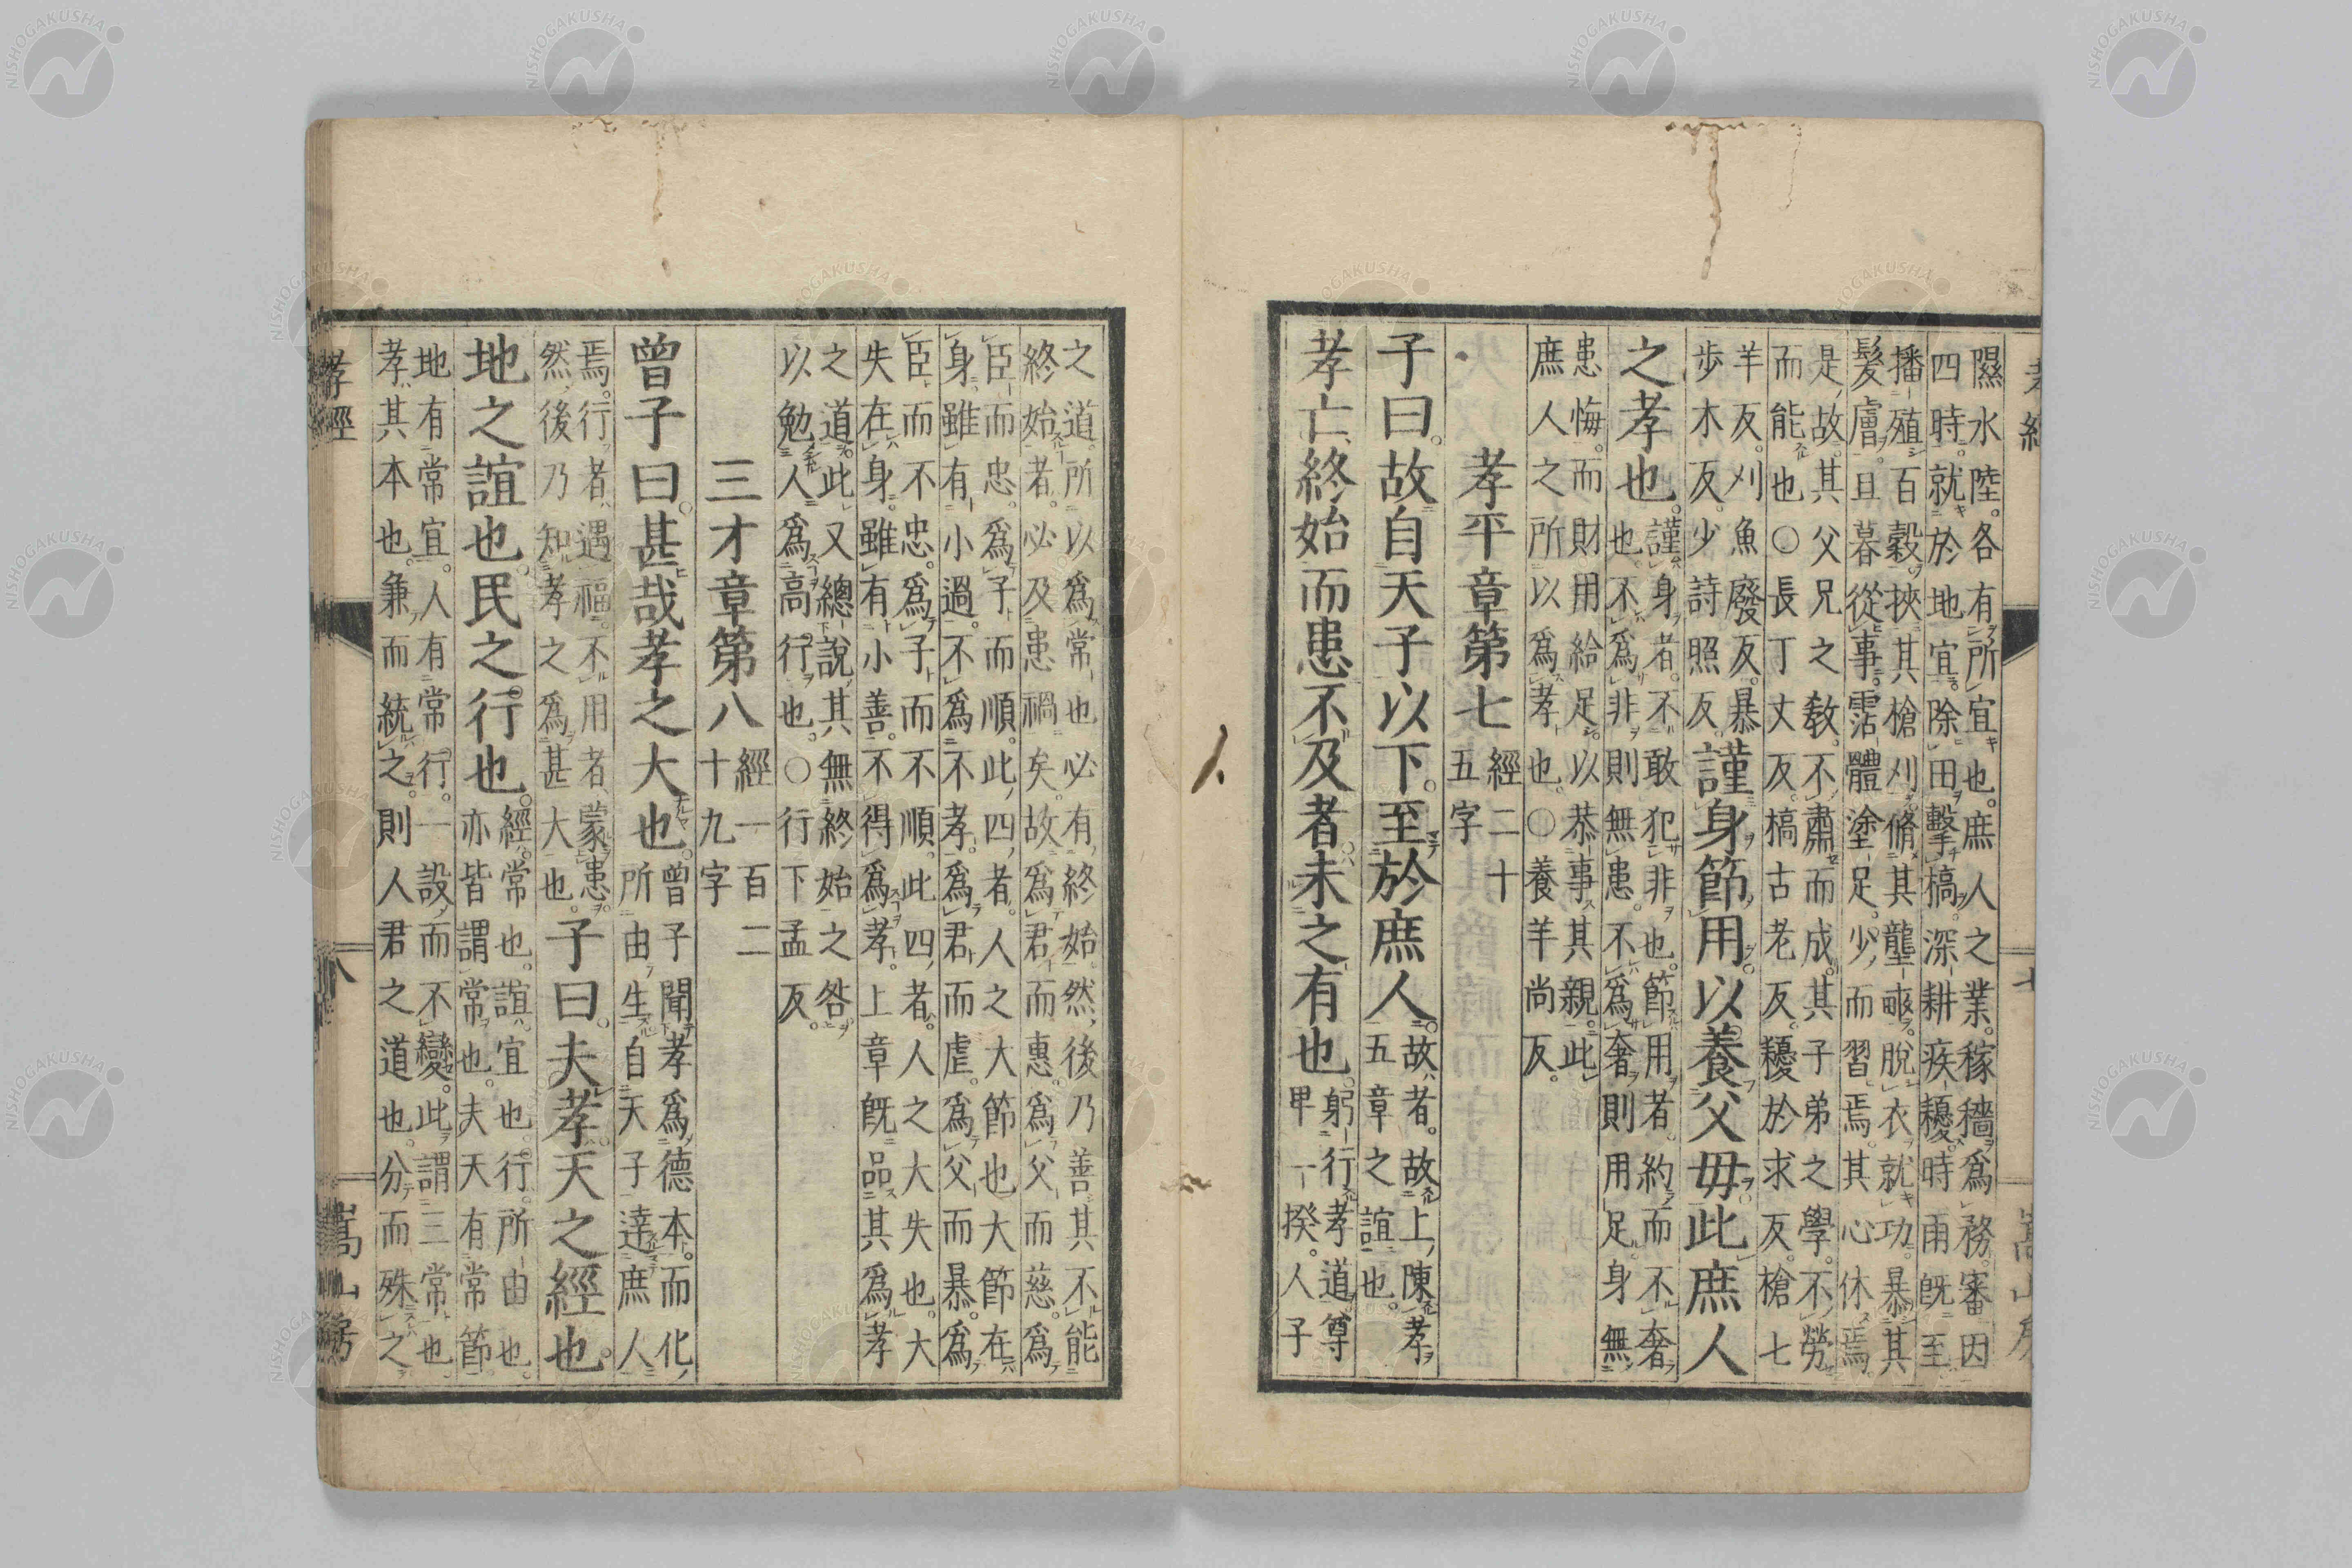 隰水陸各有所宜也庶人之業稼穡爲務審因
四時就於地宜除田擊槁深耕疾耰時雨既至
播殖百穀挾其槍刈脩其壟畝脫衣就功暴其
髮膚旦暮從事霑體塗足少而習焉其心休焉
是故其父兄之教不肅而成其子弟之學不勞
而能也○長丁丈反槁古老反耰於求反槍七
羊反刈魚廢反暴
步木反少詩照反
謹身節用以養父母此庶人
之孝也
謹身者不敢犯非也節用者約而不奢
也不爲非則無患不爲奢則用足身無
患悔而財用給足以恭事其親此
庶人之所以爲孝也○養羊尚反
孝平章第七
經二十
五字
子曰故自天子以下至於庶人
故者故上陳孝
五章之誼也
孝亡終始而患不及者未之有也
躬行孝道尊
卑一揆人子
之道所以爲常也必有終始然後乃善其不能
終始者必及患禍矣故爲君而惠爲父而慈爲
臣而忠爲子而順此四者人之大節也大節在
身雖有小過不爲不孝爲君而虐爲父而暴爲
臣而不忠爲子而不順此四者人之大失也大
失在身雖有小善不得爲孝上章既品其爲孝
之道此又總說其無終始之咎
以勉人爲高行也○行下孟反
三才章第八
經一百二
十九字
曾子曰甚哉孝之大也
曾子聞孝爲德本而化
所由生自天子達庶人
焉行者遇福不用者蒙患
然後乃知孝之爲甚大也
子曰夫孝天之經也
地之誼也民之行也
經常也誼宜也行所由也
亦皆謂常也夫天有常節
地有常宜人有常行一設而不變此謂三常也
孝其本也兼而統之則人君之道也分而殊之
孝經
八
嵩山房